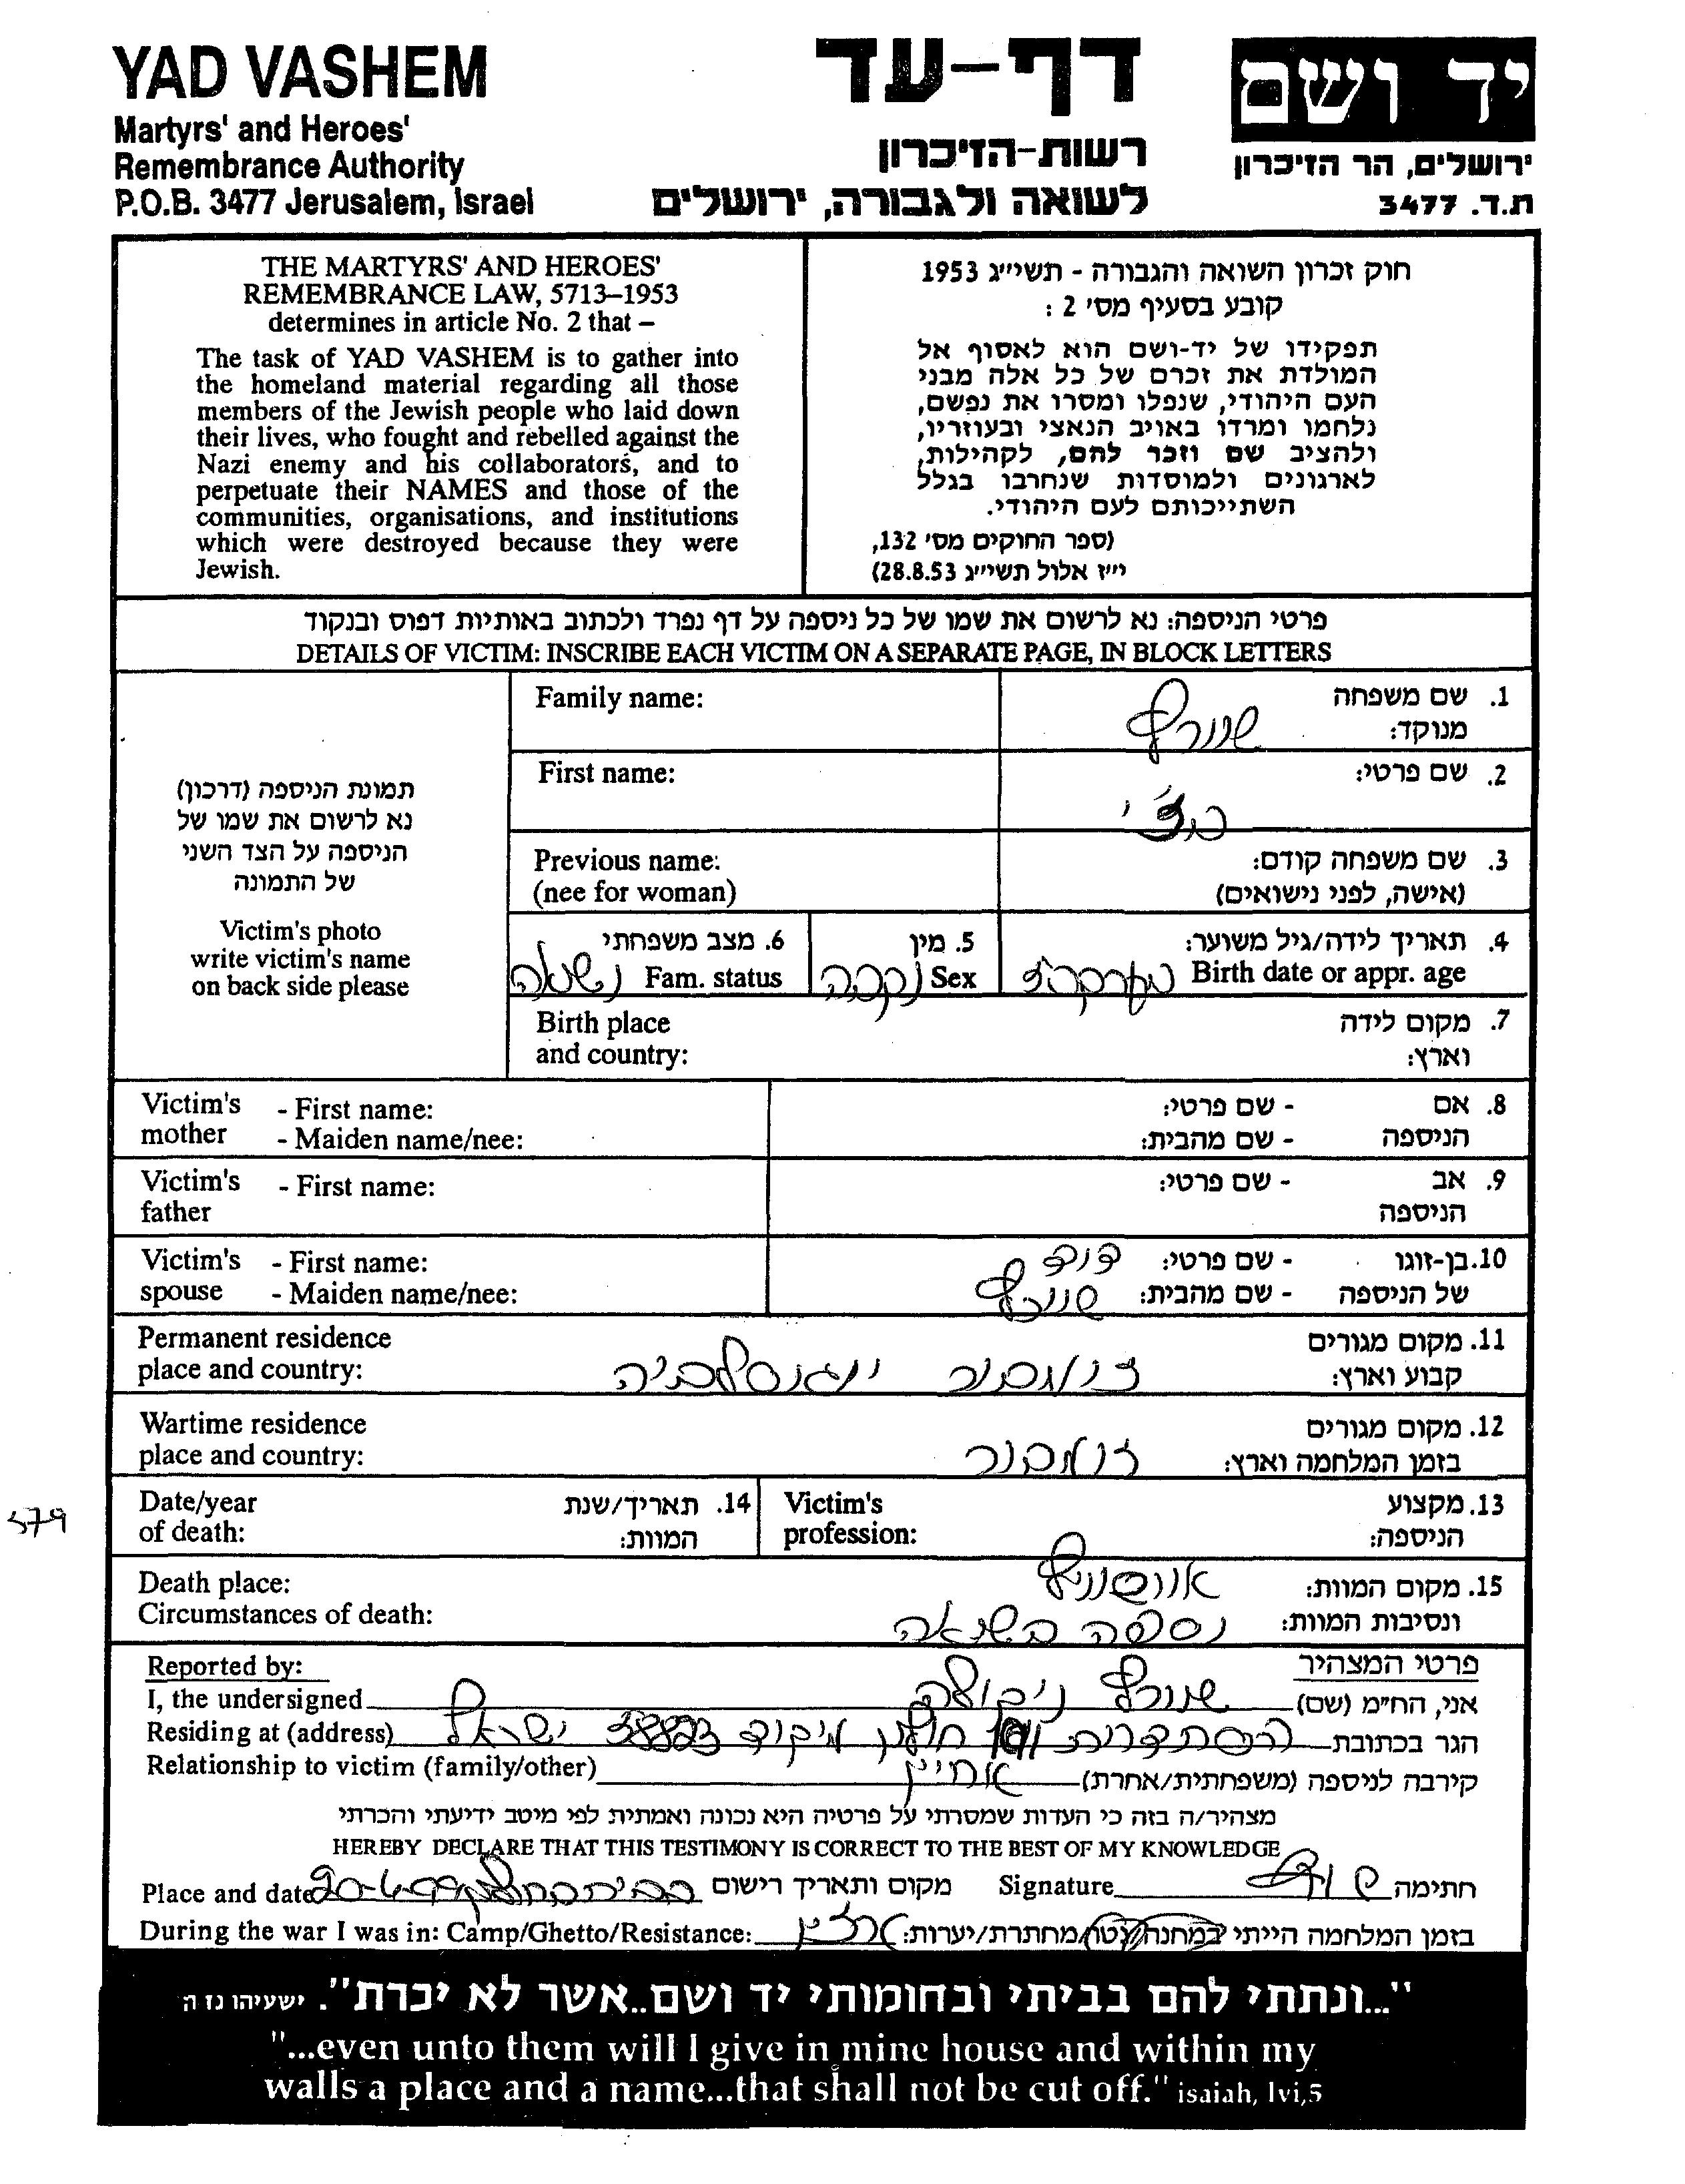 YAD VASHEM
Martyrs' and Heroes'
Remembrance Authority
P.O.B. 3477 Jerusalem, Israel
דף-עד
רשות-הזיכרון
לשואה ולגבורה, ירושלים
יד ושם
ירושלים, הר הזיכרון
ת.ד. 3477
THE MARTYRS' AND HEROES'
REMEMBRANCE LAW, 5713–1953
determines in article No. 2 that –
The task of YAD VASHEM is to gather into
the homeland material regarding all those
members of the Jewish people who laid down
their lives, who fought and rebelled against the
Nazi enemy and his collaborators, and to
perpetuate their NAMES and those of the
communities, organisations, and institutions
which were destroyed because they were
Jewish.
חוק זכרון השואה והגבורה - תשי״ג 1953
קובע בסעיף מס' 2 :
תפקידו של יד-ושם הוא לאסוף אל
המולדת את זכרם של כל אלה מבני
העם היהודי, שנפלו ומסרו את נפשם,
נלחמו ומרדו באויב הנאצי ובעוזריו,
ולהציב שם וזכר להם, לקהילות,
לארגונים ולמוסדות שנחרבו בגלל
השתייכותם לעם היהודי.
(ספר החוקים מס' 132,
י״ז אלול תשי״ג 28.8.53)
פרטי הניספה: נא לרשום את שמו של כל ניספה על דף נפרד ולכתוב באותיות דפוס ובנקוד
DETAILS OF VICTIM: INSCRIBE EACH VICTIM ON A SEPARATE PAGE, IN BLOCK LETTERS
תמונת הניספה (דרכון)
נא לרשום את שמו של
הניספה על הצד השני
של התמונה
Victim's photo
write victim's name
on back side please
Family name: שוורץ 1. שם משפחה
מנוקד:
First name: 2. שם פרטי:
Previous name: 3. שם משפחה קודם:
(nee for woman) (אישה, לפני נישואים)
6. מצב משפחתי 5. מין 4. תאריך לידה/גיל משוער:
נשואה Fam. status נקבה Sex Birth date or appr. age
Birth place 7. מקום לידה
and country: וארץ:
Victim's - First name: - שם פרטי: 8. אם
mother - Maiden name/nee: - שם מהבית: הניספה
Victim's - First name: - שם פרטי: 9. אב
father הניספה
Victim's - First name: דוד - שם פרטי: 10. בן-זוגו
spouse - Maiden name/nee: שוורץ - שם מהבית: של הניספה
Permanent residence 11. מקום מגורים
place and country: זומבור יוגוסלביה קבוע וארץ:
Wartime residence 12. מקום מגורים
place and country: זומבור בזמן המלחמה וארץ:
Date/year 14. תאריך/שנת Victim's 13. מקצוע
of death: המוות: profession: הניספה:
579
Death place: אושוויץ 15. מקום המוות:
Circumstances of death: נספתה בשואה ונסיבות המוות:
Reported by: פרטי המצהיר
I, the undersigned שוורץ ניקולה אני, הח״מ (שם)
Residing at (address) ההסתדרות חולון מיקוד 58823 ישראל הגר בכתובת
Relationship to victim (family/other) אחיין קירבה לניספה (משפחתית/אחרת)
מצהיר/ה בזה כי העדות שמסרתי על פרטיה היא נכונה ואמתית לפי מיטב ידיעתי והכרתי
HEREBY DECLARE THAT THIS TESTIMONY IS CORRECT TO THE BEST OF MY KNOWLEDGE
Place and date 20-6-99 מקום ותאריך רישום Signature חתימה
During the war I was in: Camp/Ghetto/Resistance: בזמן המלחמה הייתי במחנה/גטו/מחתרת/יערות:
"...ונתתי להם בביתי ובחומותי יד ושם..אשר לא יכרת". ישעיהו נו ה
"...even unto them will I give in mine house and within my
walls a place and a name...that shall not be cut off." isaiah, lvi,5